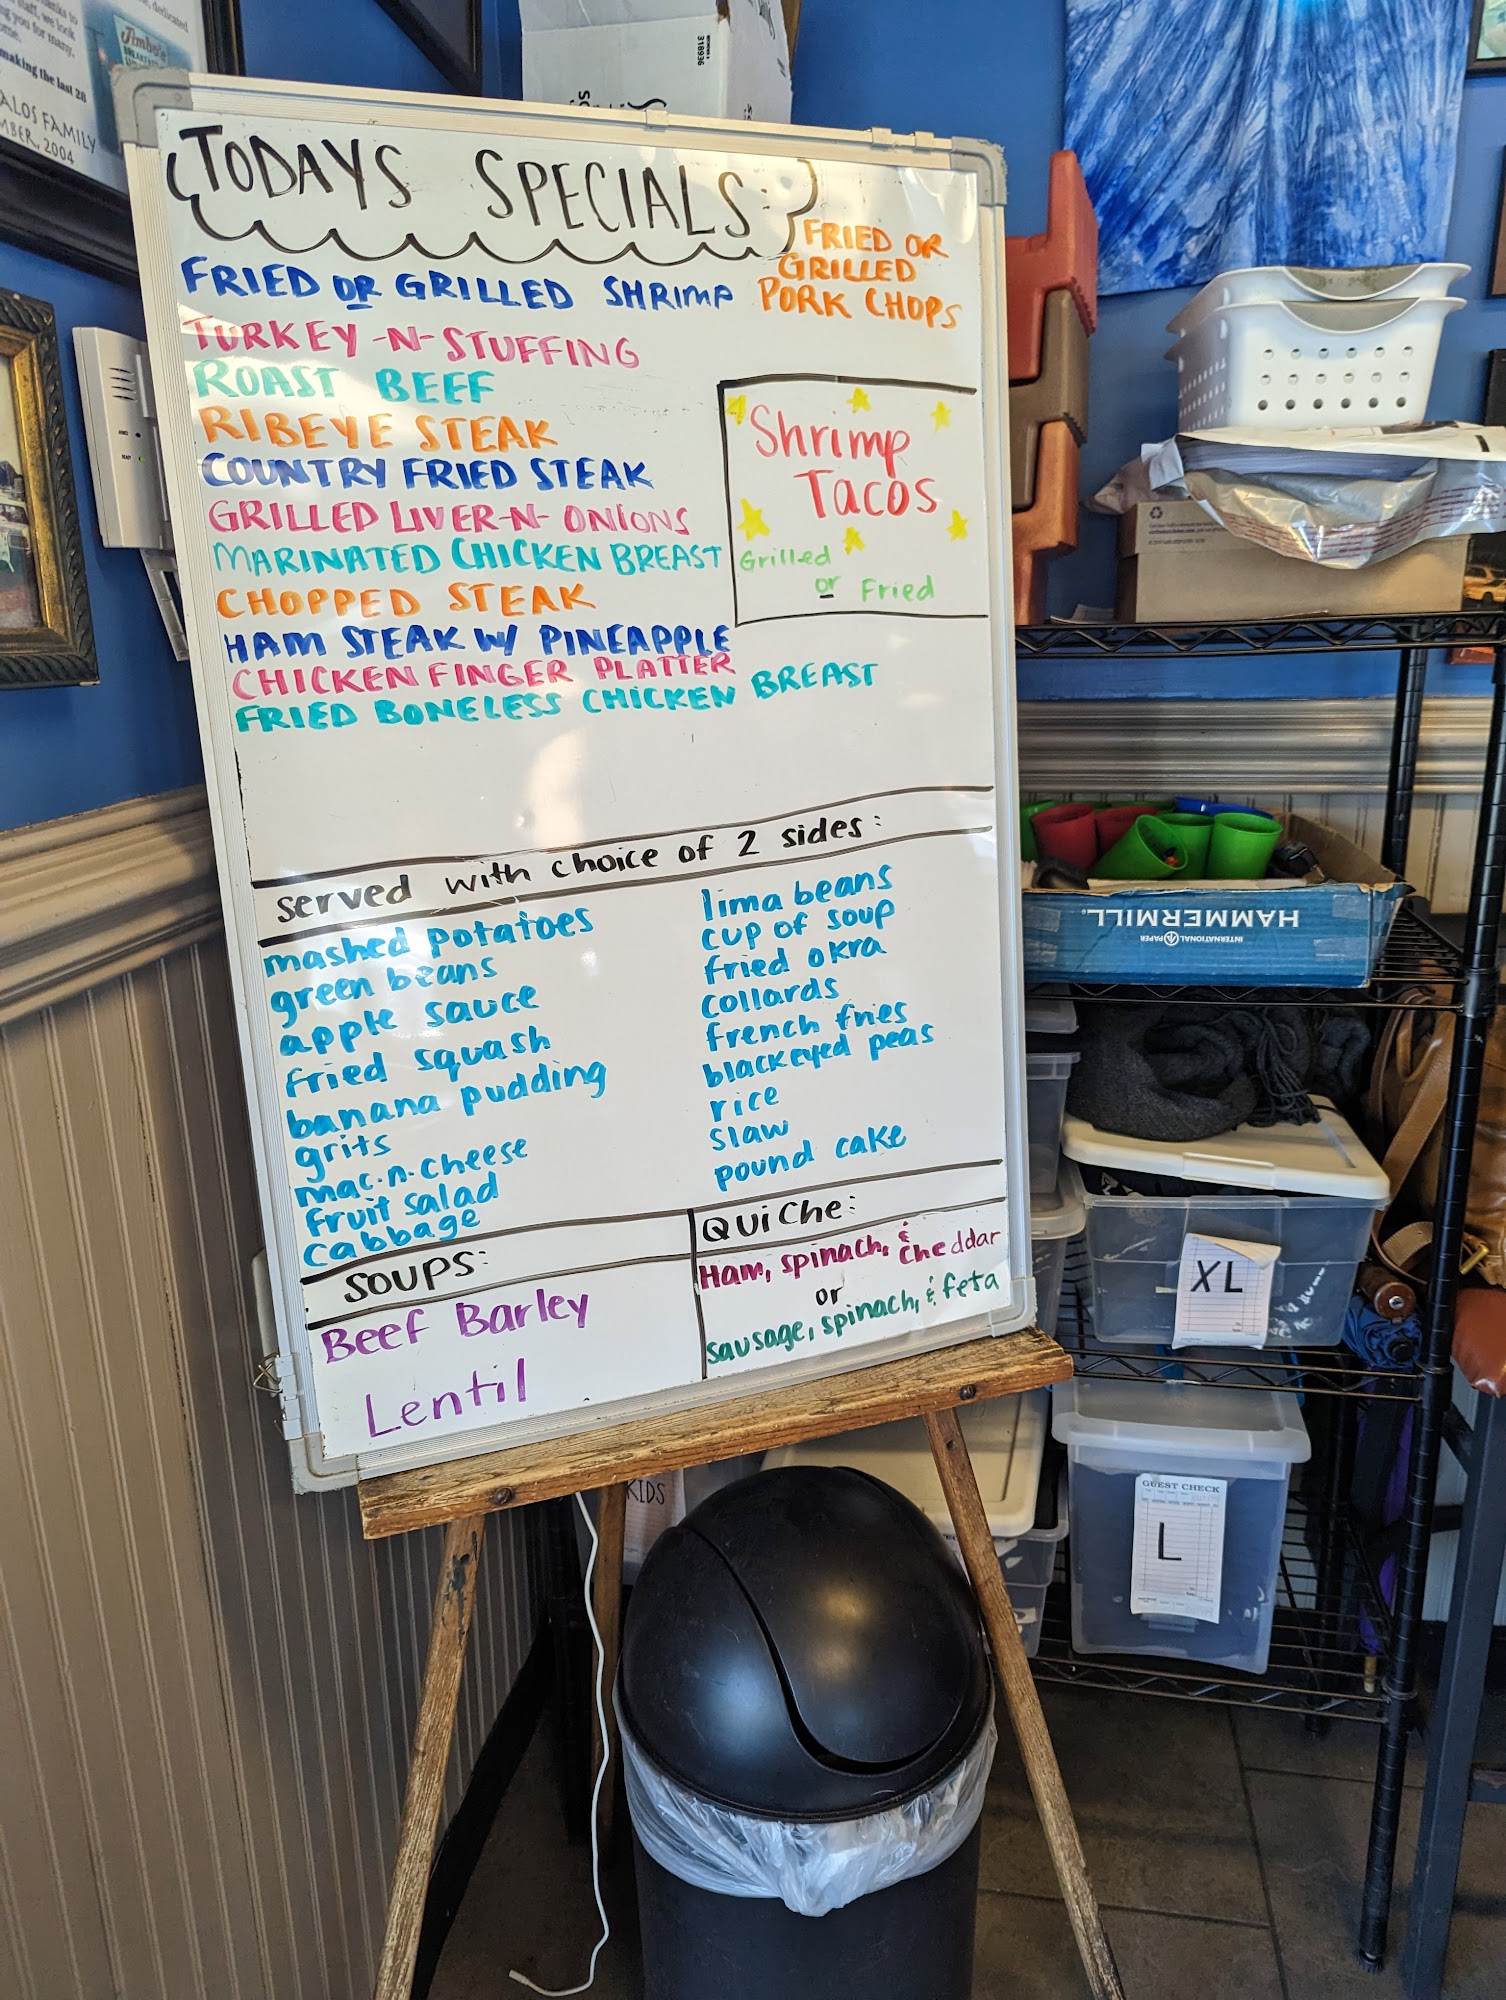 TODAYS SPECIALS:
FRIED OR GRILLED SHRIMP
TURKEY-N-STUFFING
ROAST BEEF
RIBEYE STEAK
COUNTRY FRIED STEAK
GRILLED LIVER-N-ONIONS
MARINATED CHICKEN BREAST
CHOPPED STEAK
HAM STEAK W/ PINEAPPLE
CHICKEN FINGER PLATTER
FRIED BONELESS CHICKEN BREAST
FRIED OR
GRILLED
PORK CHOPS
Shrimp
Tacos
Grilled
or Fried
served with choice of 2 sides:
mashed potatoes
green beans
apple sauce
fried squash
banana pudding
grits
mac-n-cheese
fruit salad
cabbage
lima beans
cup of soup
fried okra
collards
french fries
blackeyed peas
rice
slaw
pound cake
SOUPS:
Beef Barley
Lentil
QUICHE:
Ham, spinach, & cheddar
or
sausage, spinach, & feta
making the last 28
ALOS FAMILY
MBER, 2004
Jimbo's
318936
HAMMERMILL
INTERNATIONAL PAPER
XL
GUEST CHECK
L
KIDS